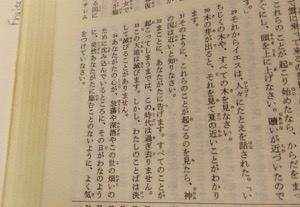 これらのことが起こり始めたなら、からだをま
っすぐにし、頭を上に上げなさい。贖いが近づいたので
29 それからイエスは、人々にたとえを話された。「い
ちじくの木や、すべての木を見なさい。
30 木の芽が出ると、それを見て夏の近いことがわかり
そのように、これらのことが起こるのを見たら、神
の国は近いと知りなさい。
まことに、あなたがたに告げます。すべてのことが
起こってしまうまでは、この時代は過ぎ去りません。
33 この天地は滅びます。しかし、わたしのことばは決
がありません。
34 あなたがたの心が、放蕩や深酒やこの世の煩いの
ために沈み込んでいるところに、その日がわなのよう
に、突然あなたがたに臨むことのないように、よく気
をつけていなさい。